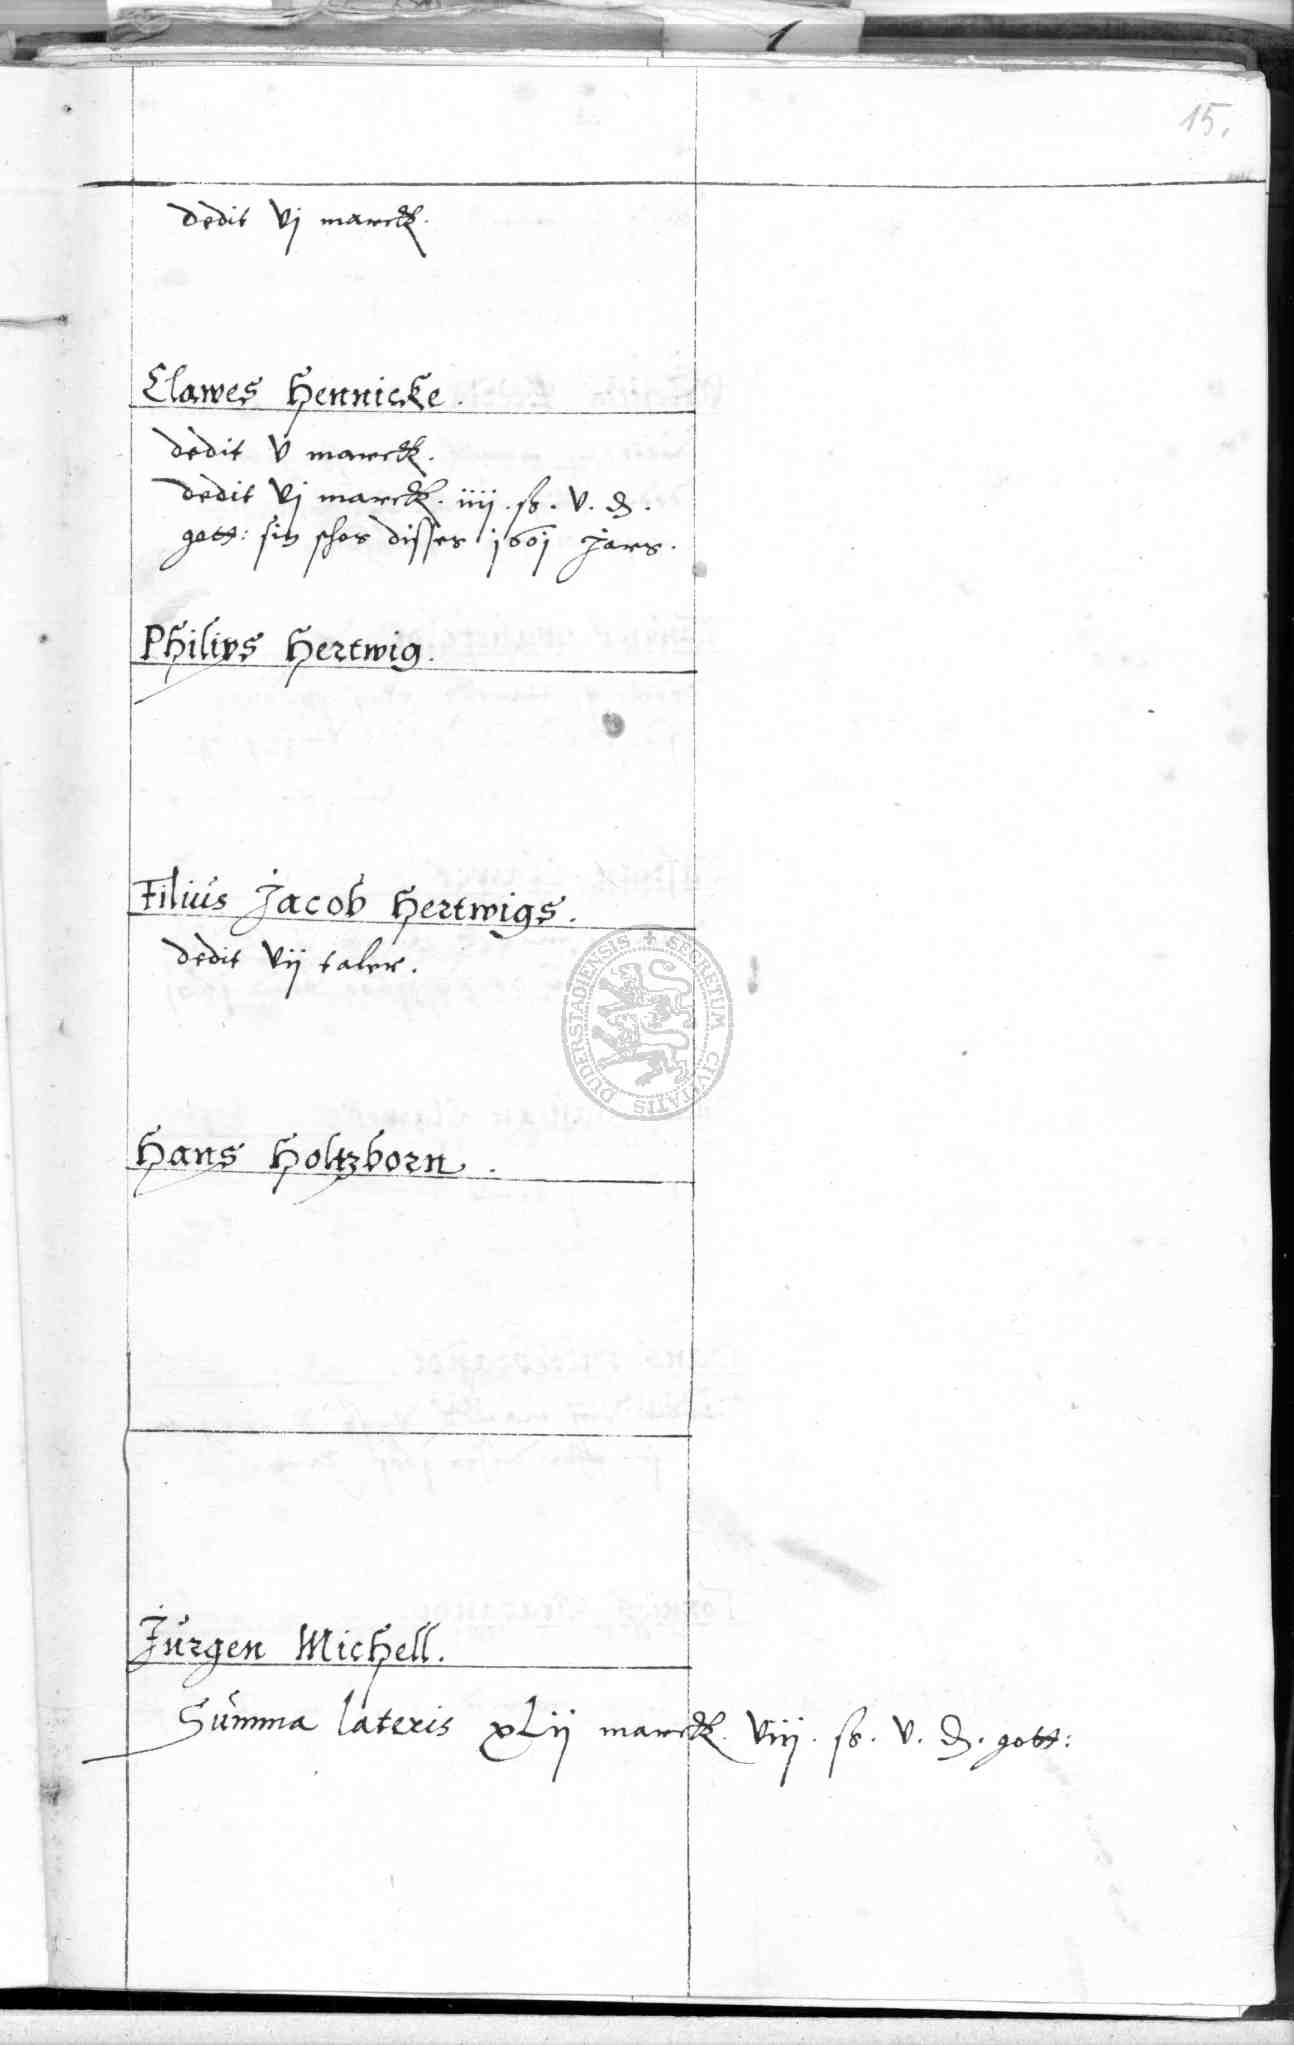 1
15.
dedit vj marck.
Clawes Hennicke.
dedit v marck.
dedit vj marck. iiij. ß. v. ₰.
gott: sin schos disses 1601 Jars.
Philips Hertwig.
Filius Jacob Hertwigs.
dedit vij taler.
SECRETUM CIVITATIS DUDERSTADIENSIS
Hans Holtzborn.
Jürgen Michell.
Summa lateris xLij marck. viij. ß. v. ₰. gott: